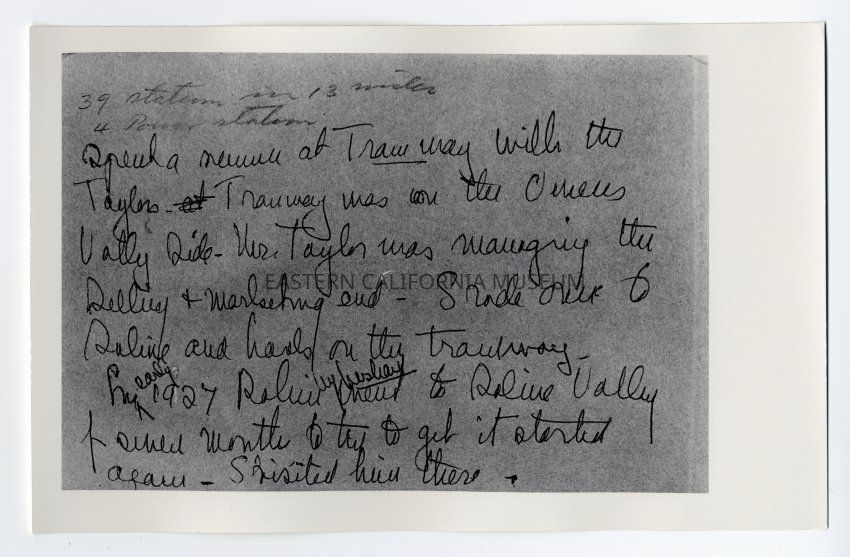 39 stations in 13 miles
4 Power stations
Spent a summer at Tramway with the
Taylors - at Tramway was on the Owens
Vally side - Mr. Taylor was managing the
EASTERN CALIFORNIA MUSEUM
Selling & marketing end - I rode over to
Saline and back on the tramway -
early my husband
1927 went to Saline Valley
f seven months to try to get it started
again - I visited him there.